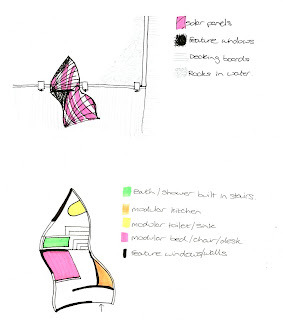 Solar panels
Feature windows
Decking boards
Rocks in water
Bath/shower built in stairs
modular kitchen
modular toilet/sink
modular bed/chair/desk
feature windows/walls